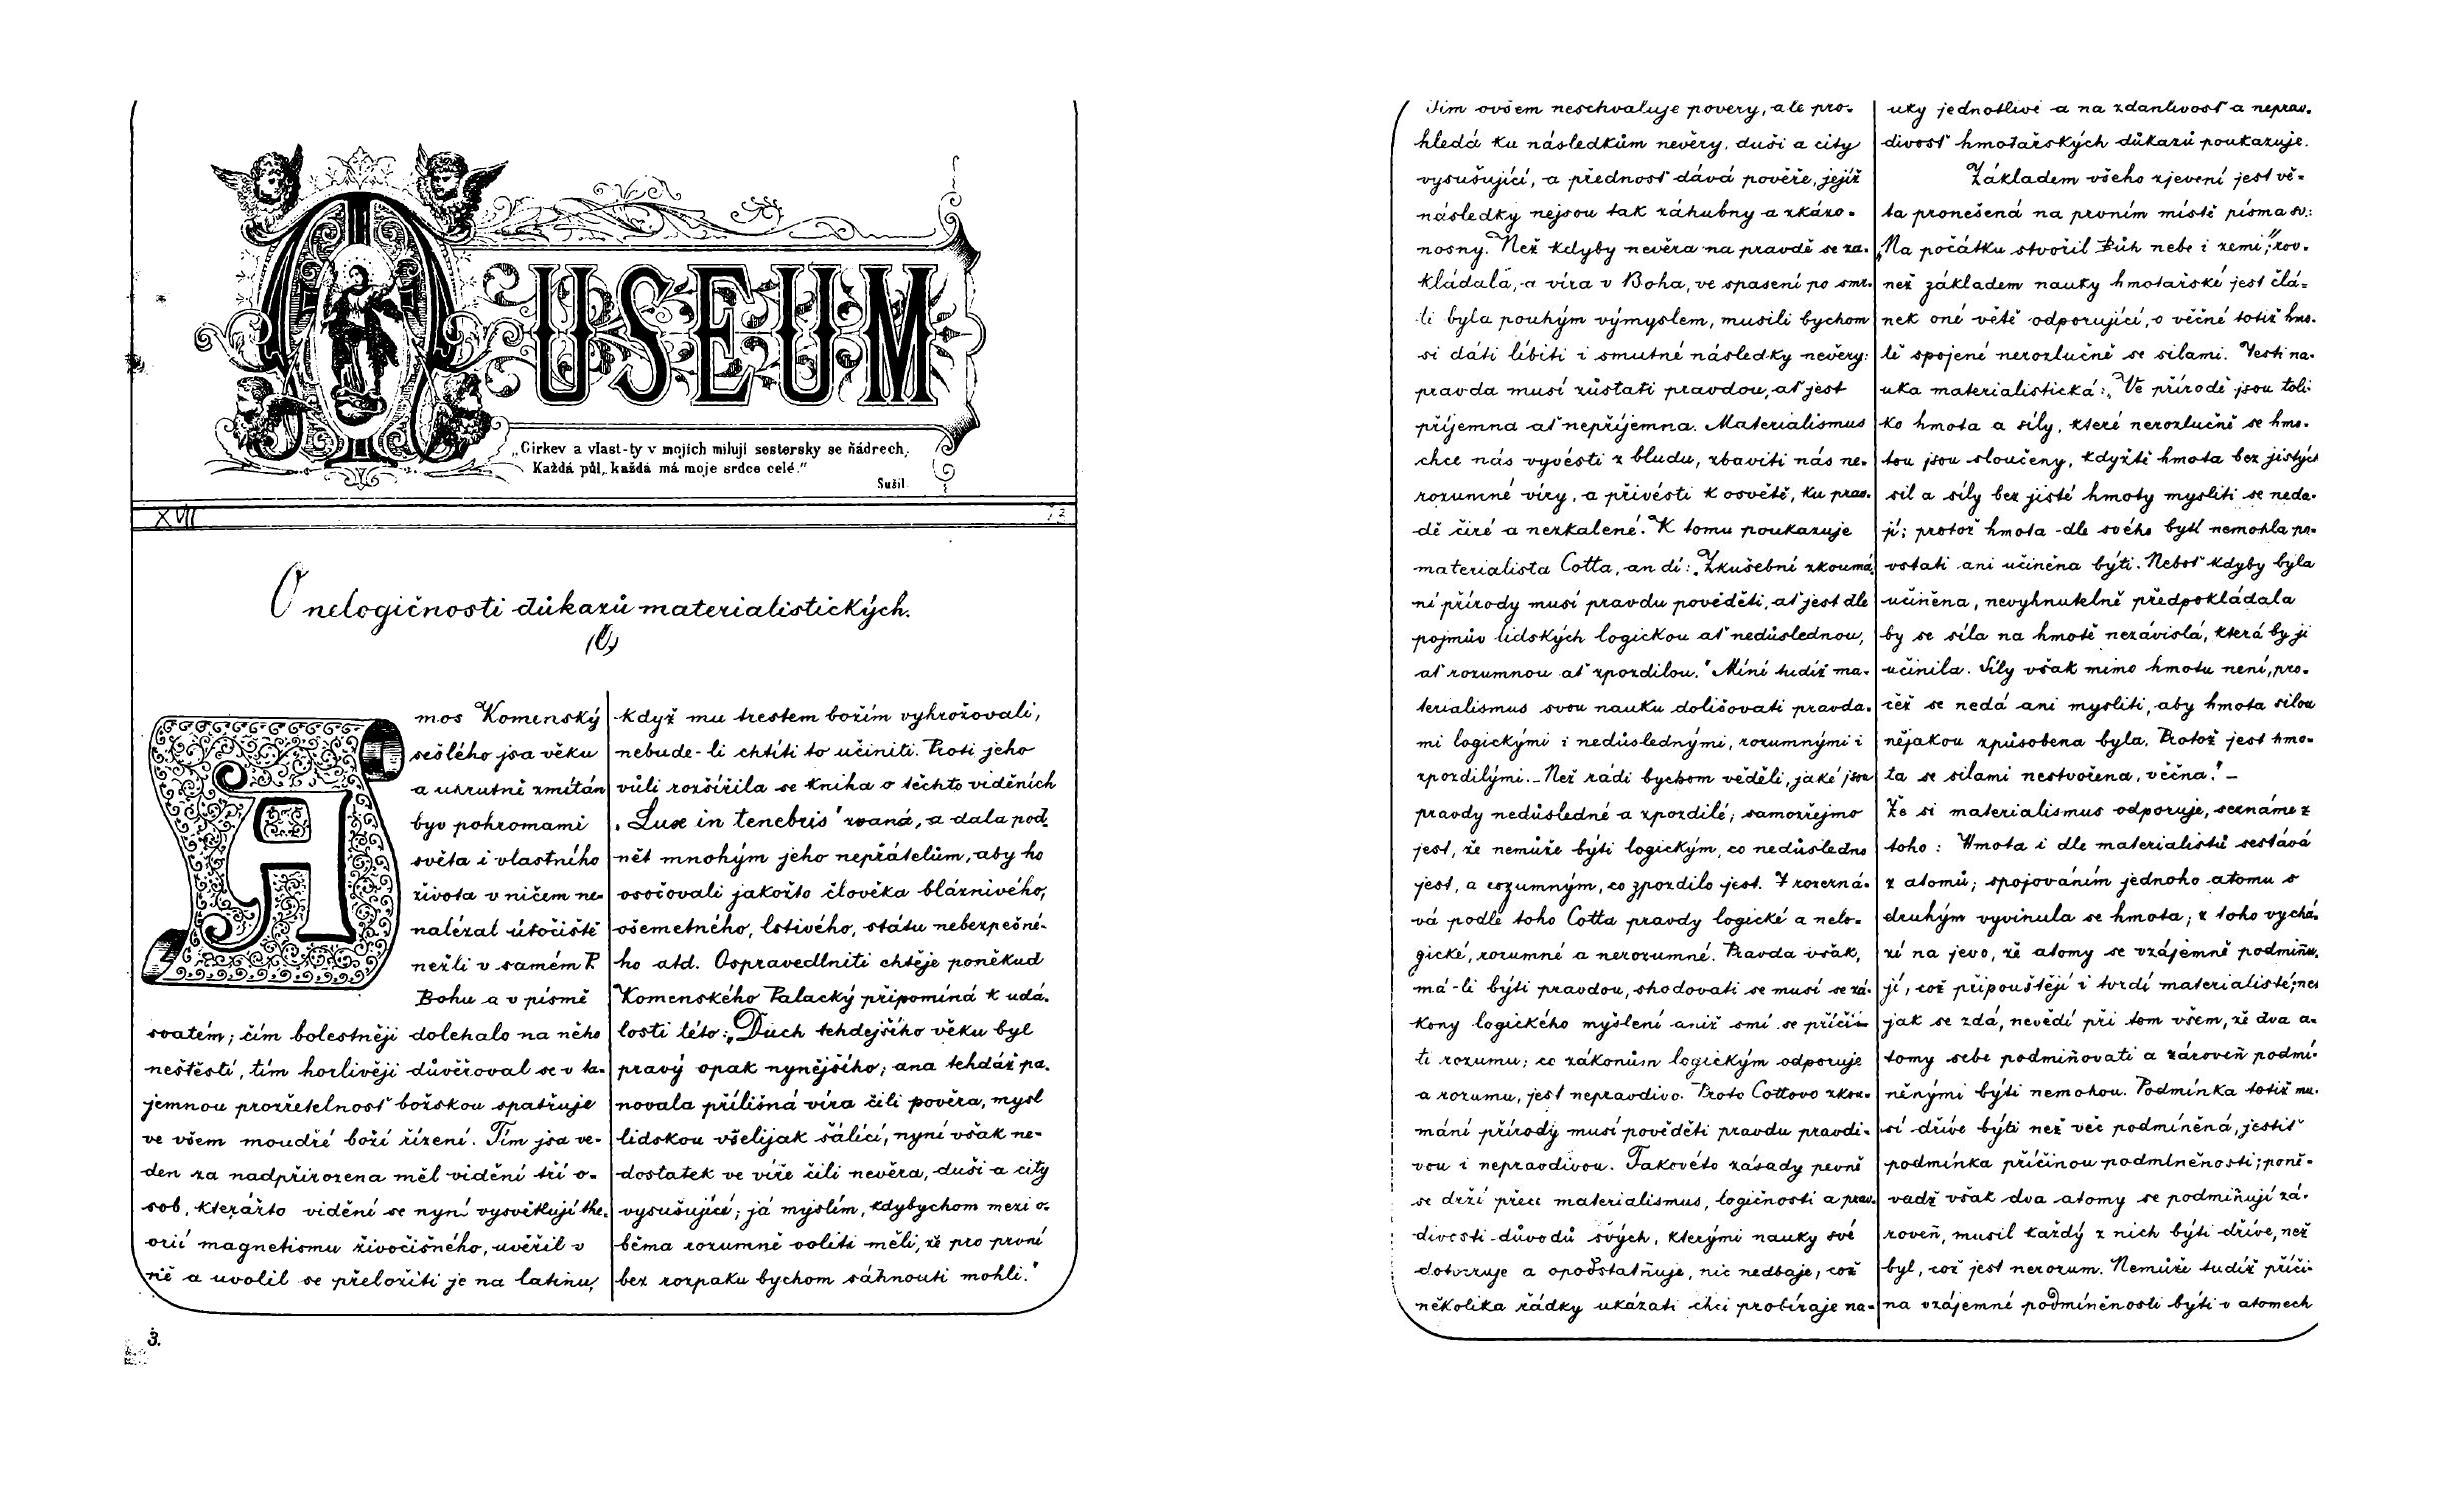 MUSEUM
„Cirkev a vlast-ty v mojích milují sestersky se ňádrech,
Každá půl, každá má moje srdce celé."
Sušil.
XVII
12
O nelogičnosti důkazů materialistických.
Amos Komenský
sešlého jsa věku
a ukrutně zmítán
byv pohromami
světa i vlastního
života v ničem ne-
nalézal útočiště
nežli v samém P.
Bohu a v písmě
svatém; čím bolestněji doléhalo na něho
neštěstí, tím horlivěji důvěřoval se v ta-
jemnou prozřetelnosť božskou spatřuje
ve všem moudré boží řízení. Tím jsa ve-
den za nadpřirozena měl vidění tří o-
sob, kterážto vidění se nyní vysvětlují the-
orií magnetismu živočišného, uvěřil v
ně a uvolil se přeložiti je na latinu,
když mu trestem božím vyhrožovali,
nebude-li chtíti to učiniti. Proti jeho
vůli rozšířila se kniha o těchto viděních
„Lux in tenebris" zvaná, a dala pod-
nět mnohým jeho nepřátelům, aby ho
osočovali jakožto člověka bláznivého,
ošemetného, lstivého, státu nebezpečné-
ho atd. Ospravedlniti chtěje poněkud
Komenského Palacký připomíná k udá-
losti této: „Duch tehdejšího věku byl
pravý opak nynějšího; ana tehdáž pa-
novala přílišná víra čili pověra, mysl
lidskou všelijak šálící, nyní však ne-
dostatek ve víře čili nevěra, duši a city
vysušující; já myslím, kdybychom mezi o-
běma rozumně voliti měli, že pro první
bez rozpaku bychom sáhnouti mohli."
3.
Tím ovšem neschvaluje pověry, ale pro-
hledá ku následkům nevěry, duši a city
vysušující, a přednosť dává pověře, jejíž
následky nejsou tak záhubny a zkázo-
nosny. Než kdyby nevěra na pravdě se za-
kládala, a víra v Boha, ve spasení po smr-
ti byla pouhým výmyslem, musili bychom
si dáti líbiti i smutné následky nevěry:
pravda musí zůstati pravdou, ať jest
příjemna ať nepříjemna. Materialismus
chce nás vyvésti z bludu, zbaviti nás ne-
rozumné víry, a přivésti k osvětě, ku prav-
dě čiré a nezkalené. K tomu poukazuje
materialista Cotta, an dí: „Zkušební zkoumá-
ní přírody musí pravdu pověděti, ať jest dle
pojmův lidských logickou ať nedůslednou,
ať rozumnou ať zpozdilou." Míní tudíž ma-
terialismus svou nauku doličovati pravda-
mi logickými i nedůslednými, rozumnými i
zpozdilými. – Než rádi bychom věděli, jaké jsou
pravdy nedůsledné a zpozdilé; samozřejmo
jest, že nemůže býti logickým, co nedůsledno
jest, a rozumným, co zpozdilo jest. I rozezná-
vá podle toho Cotta pravdy logické a nelo-
gické, rozumné a nerozumné. Pravda však,
má-li býti pravdou, shodovati se musí se zá-
kony logického myšlení aniž smí se příčí-
ti rozumu; co zákonům logickým odporuje
a rozumu, jest nepravdivo. Proto Cottovo zkou-
mání přírody musí pověděti pravdu pravdi-
vou i nepravdivou. Takovéto zásady pevně
se drží přece materialismus, logičnosti a prav-
divosti důvodů svých, kterými nauky své
dotvrzuje a opodstatňuje, nic nedbaje, což
několika řádky ukázati chci probíraje na-
uky jednotlivé a na zdánlivosť a neprav-
divosť hmotařských důkazů poukazuje.
Základem všeho zjevení jest vě-
ta pronešená na prvním místě písma sv.:
„Na počátku stvořil Bůh nebe i zemi," rov-
než základem nauky hmotařské jest člá-
nek oné větě odporující, o věčné totiž hmo-
tě spojené nerozlučně se silami. Jestiť na-
uka materialistická: „Ve přírodě jsou toli-
ko hmota a síly, které nerozlučně se hmo-
tou jsou sloučeny, kdyžtě hmota bez jistých
sil a síly bez jisté hmoty mysliti se neda-
jí; protož hmota dle svého bytí nemohla po-
vstati ani učiněna býti. Neboť kdyby byla
učiněna, nevyhnutelně předpokládala
by se síla na hmotě nezávislá, která by ji
učinila. Síly však mimo hmotu není, pro-
čež se nedá ani mysliti, aby hmota silou
nějakou způsobena byla. Protož jest hmo-
ta se silami nestvořena, věčna." –
Že si materialismus odporuje, seznáme z
toho: Hmota i dle materialistů sestává
z atomů; spojováním jednoho atomu s
druhým vyvinula se hmota; z toho vychá-
zí na jevo, že atomy se vzájemně podmiňu-
jí, což připouštějí i tvrdí materialisté; než
jak se zdá, nevědí při tom všem, že dva a-
tomy sebe podmiňovati a zároveň podmí-
něnými býti nemohou. Podmínka totiž mu-
sí dříve býti než věc podmíněná, jestiť
podmínka příčinou podmíněnosti; poně-
vadž však dva atomy se podmiňují zá-
roveň, musil každý z nich býti dříve, než
byl, což jest nerozum. Nemůže tudíž příči-
na vzájemné podmíněnosti býti v atomech